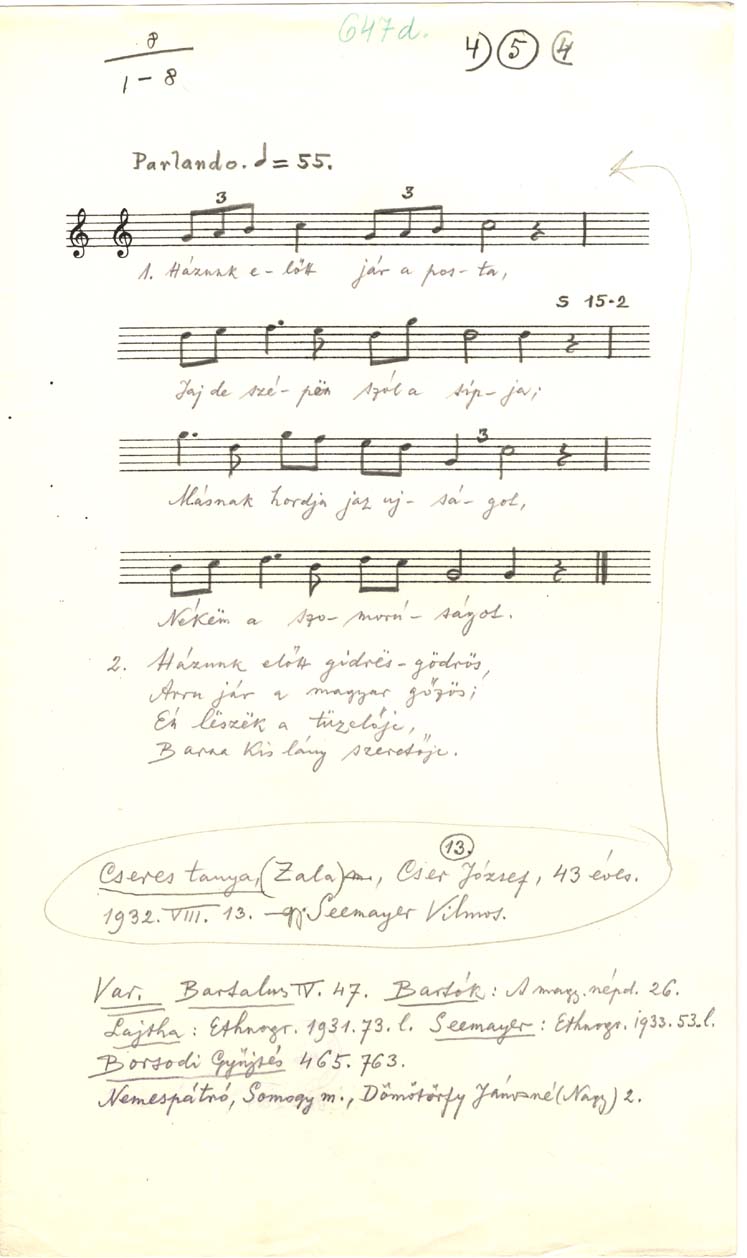 647d.
8
1-8
4) 5 4
Parlando. = 55.
3 3
1. Házunk e-lőtt jár a pos-ta,
S 15-2
Jaj de szé-pën szól a síp-ja;
3
Másnak hordja jaz uj-sá-got,
Nékëm a szo-morú-ságot.
2. Házunk előtt gidrës-gödrös,
Arru jár a magyar gőzös;
Én lëszëk a tüzelője,
Barna kis lány szeretője.
13.
Cseres tanya, (Zala) m., Cser József, 43 éves.
1932. VIII. 13. Seemayer Vilmos.
Var. Bartalus IV. 47. Bartók: A magy. népd. 26.
Lajtha: Ethnogr. 1931. 73. l. Seemayer: Ethnogr. 1933. 53. l.
Borsodi Gyűjtés 465. 763.
Nemespátró, Somogy m., Dömötörfy Jánosné (Nagy) 2.